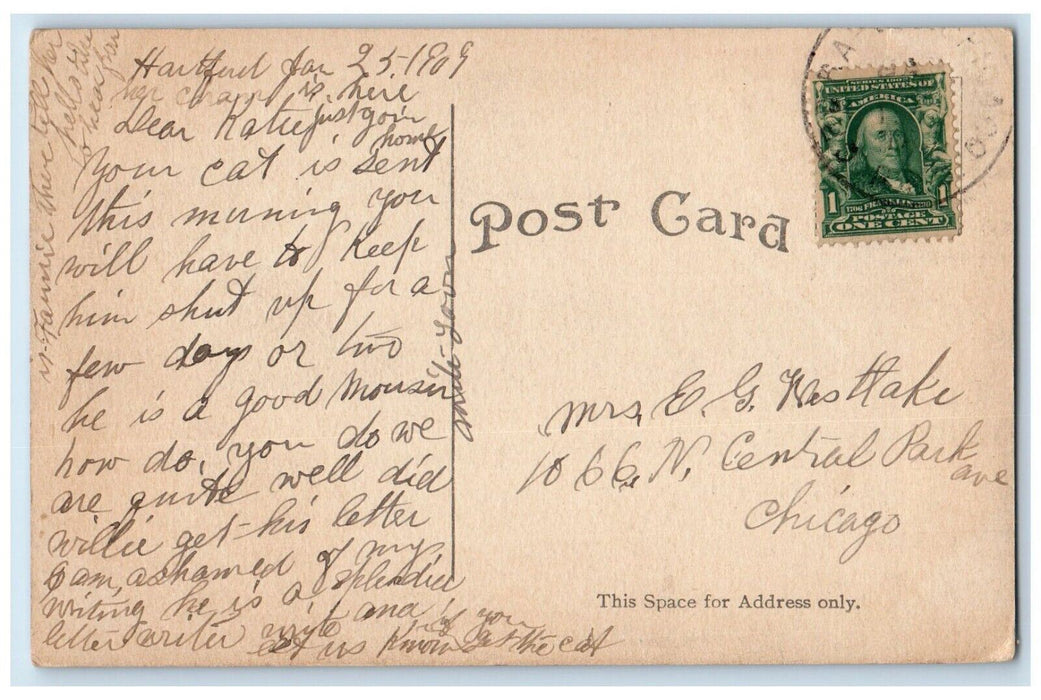 Hartford Jan 25-1909
her is here
Dear Katie just goin
home
Your cat is sent
this morning you
will have to keep
him shut up for a
few days or two
he is a good Mouser
how do, you do we
are quite well did
willie get his letter
I am ashamed of my
writing he is a splendid
letter writer write and if you
let us know get the cat
write soon
is Fannie there tell her
hello
to hear from
Post Card
SERIES 1902
UNITED STATES OF
AMERICA
1 FRANKLIN
POSTAGE
ONE CENT
Mrs, E. G. Westlake
1066, N. Central Park
ave
Chicago
This Space for Address only.